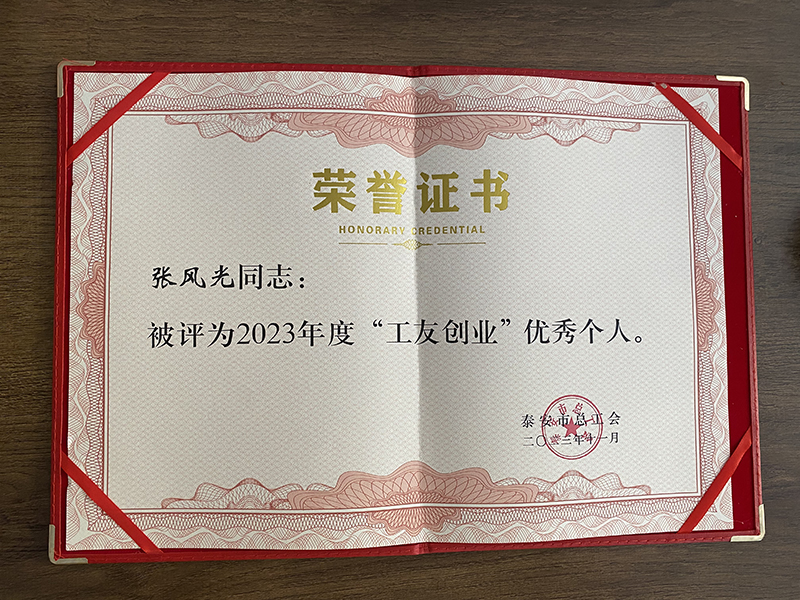 荣誉证书
HONORARY CREDENTIAL
张风光同志：
被评为2023年度“工友创业”优秀个人。
泰安市总工会
二〇二三年十一月